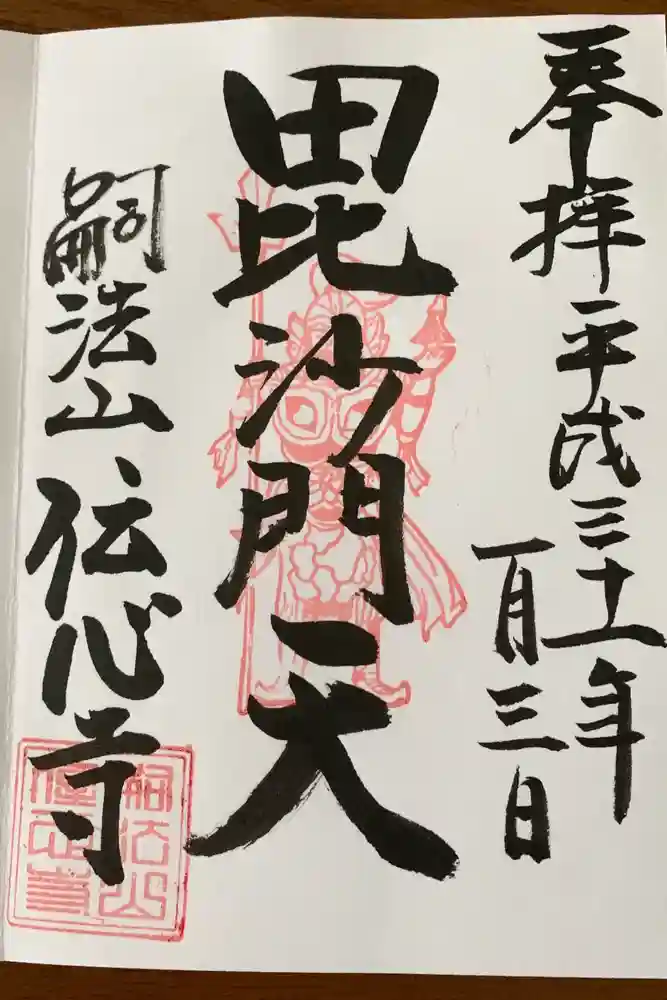 奉拝
平成三十一年
一月三日
毘沙門天
嗣法山
伝心寺
嗣法山
伝心寺